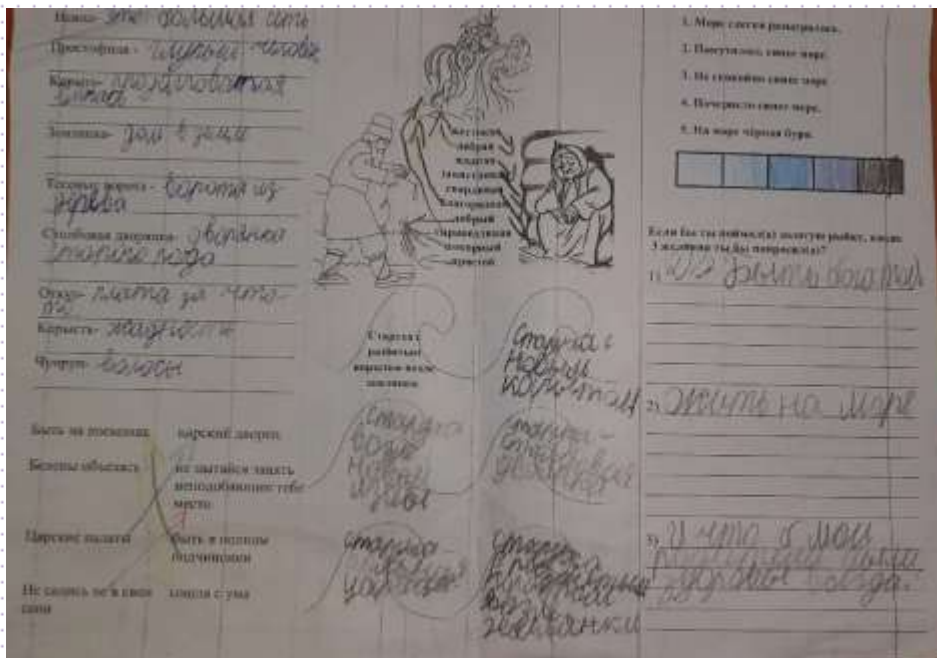 Невод- это большая сеть
Простофиля - глупый человек
Корыто- продолговатая
Землянка- дом в земле
Тесовые ворота- ворота из
дерева
Столбовая дворянка- дворянка
старого рода
Откуп- плата за что-
то
Корысть- жадность
Чупрун- волосы
Быть на посылках
царский дворец
Белены объелась
не пытайся занять
неподобающее тебе
место
Царские палаты
быть в полном
подчинении
Не садись не в свои
сани
сошла с ума
жестокая
добрая
жадная
сварливая
благородная
добрый
справедливая
покорный
простой
Старуха с
разбитым
корытом возле
землянки
Старуха с
новым
корытом
Старуха
возле
новой
избы
Старуха-
столбовая
дворянка
Старуха-
царица
Старуха
землянки
1. Море слегка разыгралось.
2. Помутилось синее море.
3. Не спокойно синее море.
4. Почернело синее море.
5. На море чёрная буря.
Если бы ты поймал(а) золотую рыбку, какие
3 желания ты бы попросил(а)?
1) быть богатой
2) жить на море
3) И что б мои
были
здоровы всегда!